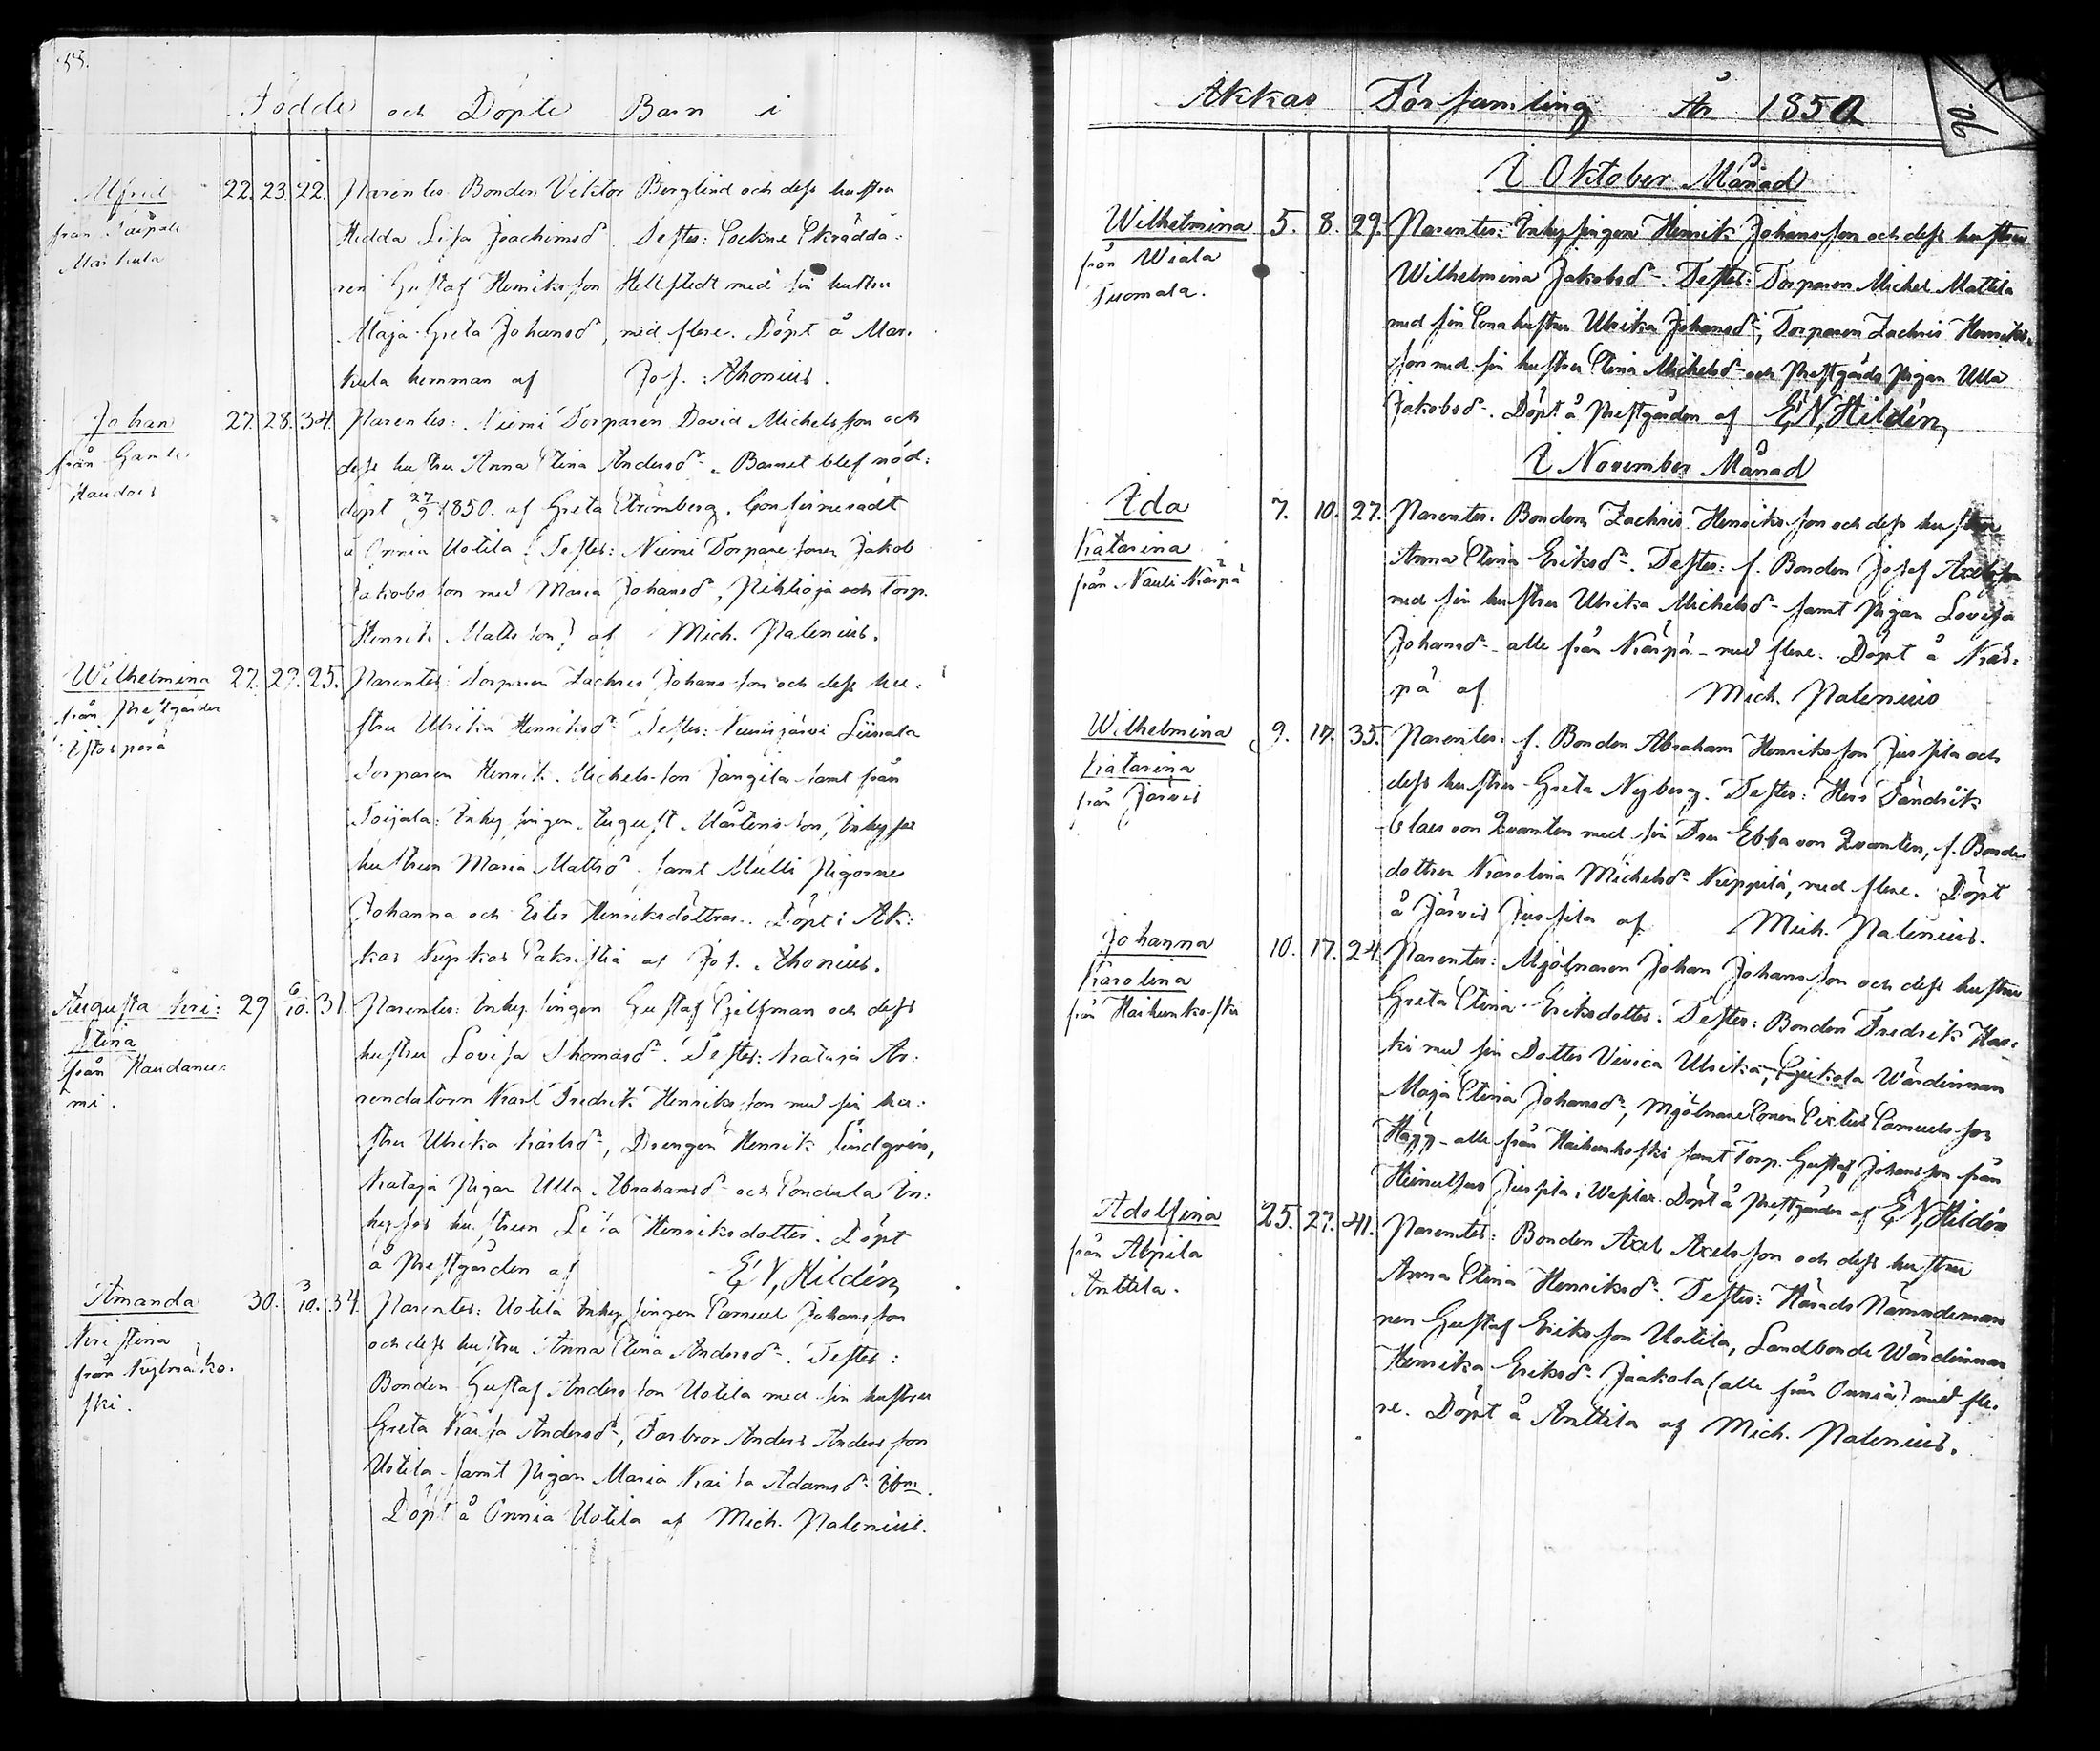 55.
Födde och Döpte Barn i
Alfred
från
Markula
22. 23. 22.
Parentes Bonden Viktor Berglind och dess hustru
Hedda Lisa Joachimsdr. Testes: Sockne Skräddā:
ren Gustaf Henriksson Hellstedt med sin hustru
Maja Greta Johansdr, med flere. Döpt å Mar:
kula hemman af Jos. Ahonius.
Johan
från Gamle
27. 28. 34.
Parentes: Niemi Torparen David Michelsson och
dess hustru Anna Stina Andersdr. Barnet blef nöd:
döpt 27/9 1850. af Greta Strömberg. Confirmeradt
å Onnia Uotila (Testes: Niemi Torpare sonen Jakob
Jakobsson med Maria Johansdr, Pihlioja och torp.
Henrik Matsson) af Mich. Palenius.
Wilhelmina
från Prestgården
27. 29. 25.
Parentes: Torparen Zachris Johansson och dess hu:
stru Ulrika Henriksdr Testes: Liuala
Torparen Henrik Michelsson Jangila samt från
Toijala: Inhysingen August Mårtensson, Inhyses
hustrun Maria Mattsdr samt Mälli Pigorne
Johanna och Ester Henriksdöttrar. Döpt i Ak:
kas Kyrkas Sakristia af Jos. Ahonius.
Augusta Kri:
stina
från Haudanie:
mi.
29 6/10. 31.
Parentes: Inhysingen Gustaf och dess
hustru Lovisa Thomasdr. Testes: Kataja Ar:
rendatorn Karl Fredrik Henriksson med sin hu:
stru Ulrika Karlsdr, Drengen Henrik Lindgrén,
Kataja Pigan Ulla Abrahamsdr och Sondula In:
hyses hustrun Lisa Henriksdotter. Döpt
å Prestgården af E, N, Hildén,
Amanda
Kristina
30. 3/10. 34.
Parentes: Uotila Inhysingen Samuel Johansson
och dess hustru Anna Stina Andersdr. Testes:
Bonden Gustaf Andersson Uotila med sin hustru
Greta Kaisa Andersdr, Farbror Anders Andersson
Uotila samt Pigan Maria Kaisa Adamsdr ibm.
Döpt å Onnia Uotila af Mich. Palenius.
Akkas Församling År 1850
I Oktober Månad
Wilhelmina
från Wiala
Tuomala.
5. 8. 29.
Parentes: Inhysingen Henrik Johansson och dess hustru
Wilhelmina Jakobsdr. Testes: Torparen Michel Mattila
med sin hustru Ulrika Johansdr, Torparen Zachris Henriks:
son med sin hustru Stina Michelsdr och Prestgårds Pigan Ulla
Jakobsdr. Döpt å Prestgården af E, N, Hildén,
I November Månad
Ida
Katarina
från Nauli Kärpä
7. 10. 27.
Parentes. Bonden Zachris Henriksson och dess hustru
Anna Stina Eriksdr. Testes: f. Bonden Josef Axelsson
med sin hustru Ulrika Michelsdr samt Pigan Lovisa
Johansdr alle från Kärpä med flere. Döpt å Kär:
pä af Mich. Palenius
Wilhelmina
Katarina
från Järvis
9. 17. 35.
Parentes: f. Bonden Abraham Henriksson Jussila och
dess hustru Greta Nyberg. Testes: Herr Fändrik
Claes von Qvanten med sin Fru Ebba von Qvanten, f. Bonde
dottren Karolina Michelsdr Kieppilä, med flere. Döpt
å Järvis Jussila af Mich. Palenius.
Johanna
Karolina
från Haihunkoski
10. 17. 24.
Parentes: Mjölnaren Johan Johansson och dess hustru
Greta Stina Eriksdotter. Testes: Bonden Fredrik
ki med sin Dotter Vivica Ulrika, Wärdinnan
Maja Stina Johansdr, Mjölnare Sonen Sixtus Samuelsson
Hägg alle från Haihunkoski samt Torp. Gustaf Johansson från
Jussila i Wesilax. Döpt å Prestgården af E, N, Hildén
Adolfina
från Alpila
Anttila.
25. 27. 41.
Parentes: Bonden Axel Axelsson och dess hustru
Anna Stina Henriksdr. Testes: Härads Nämndeman
nen Gustaf Eriksson Uotila, Landbonde Wärdinnan
Henrika Eriksdr Jaakola (alle från Onnia) med fle:
re. Döpt å Anttila af Mich. Palenius.